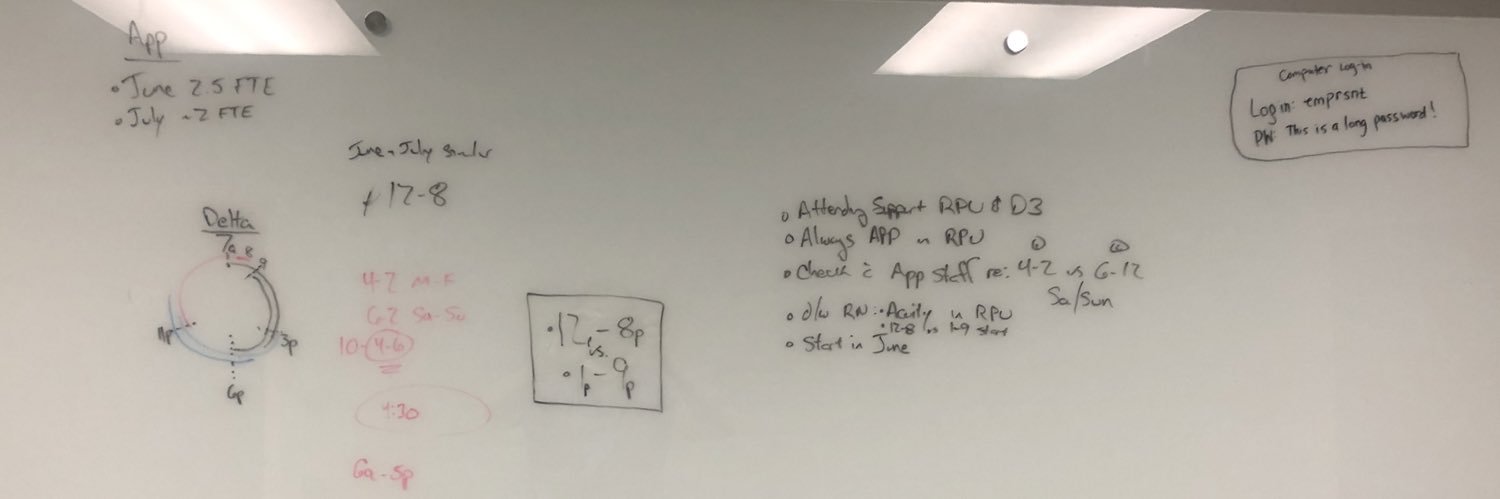 App
• June 2.5 FTE
• July ~2 FTE
June + July similar
12-8
Delta
7a 8 9
3p
6p
11p
4-2 M-F
6-2 Sa-Su
10-4-6
4:30
6a-5p
• 12 - 8p
vs.
• 1p - 9p
• Attending Support RPU & D3
• Always APP in RPU
• Check c̄ App staff re: 4-2 vs 6-12
Sa/Sun
• d/w RN: • Acuity in RPU
• 12-8 vs 1-9 start
• Start in June
Computer Log in
Log in: emprsnt
PW: This is a long password!